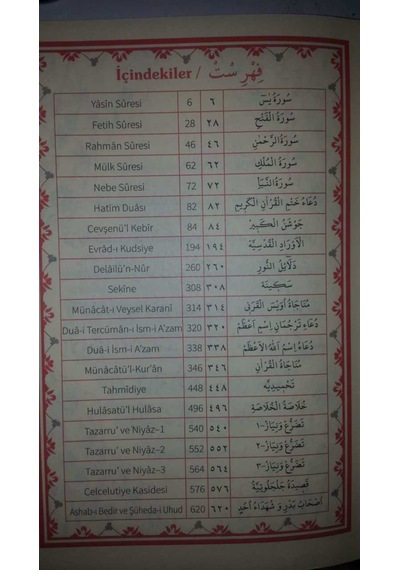 İçindekiler / فِهْرِسْتْ
Yâsîn Sûresi 6 ٦ سُورَةُ يٰسٓ
Fetih Sûresi 28 ٢٨ سُورَةُ الْفَتْحِ
Rahmân Sûresi 46 ٤٦ سُورَةُ الرَّحْمٰنِ
Mülk Sûresi 62 ٦٢ سُورَةُ الْمُلْكِ
Nebe Sûresi 72 ٧٢ سُورَةُ النَّبَأِ
Hatim Duâsı 82 ٨٢ دُعَاءُ خَتْمِ الْقُرْاٰنِ الْكَرِيمِ
Cevşenü'l Kebîr 84 ٨٤ جَوْشَنُ الْكَبِيرِ
Evrâd-ı Kudsiye 194 ١٩٤ اَلْاَوْرَادُ الْقُدْسِيَّةِ
Delâilü'n-Nûr 260 ٢٦٠ دَلَائِلُ النُّورِ
Sekîne 308 ٣٠٨ سَكِينَة
Münâcât-ı Veysel Karanî 314 ٣١٤ مُنَاجَاةُ اُوَيْسَ الْقَرَنِى
Duâ-i Tercümân-ı İsm-i A'zam 320 ٣٢٠ دُعَاءِ تَرْجُمَانِ اِسْمِ اَعْظَمْ
Duâ-i İsm-i A'zam 338 ٣٣٨ دُعَاءُ اِسْمِ اللّٰهِ الْاَعْظَمْ
Münâcâtü'l-Kur'ân 346 ٣٤٦ مُنَاجَاةُ الْقُرْاٰنِ
Tahmîdiye 448 ٤٤٨ تَحْمِيدِيَّه
Hulâsatü'l Hulâsa 496 ٤٩٦ خُلَاصَةُ الْخُلَاصَةِ
Tazarru' ve Niyâz-1 540 ٥٤٠ تَضَرُّعْ وَنِيَازْ-١
Tazarru' ve Niyâz-2 552 ٥٥٢ تَضَرُّعْ وَنِيَازْ-٢
Tazarru' ve Niyâz-3 564 ٥٦٤ تَضَرُّعْ وَنِيَازْ-٣
Celcelutiye Kasidesi 576 ٥٧٦ قَصِيدَةُ جَلْجَلُوتِيَّةُ
Ashab-ı Bedir ve Şüheda-i Uhud 620 ٦٢٠ اَصْحَابِ بَدِرْ وَ شُهَدَاءُ اُحُدْ